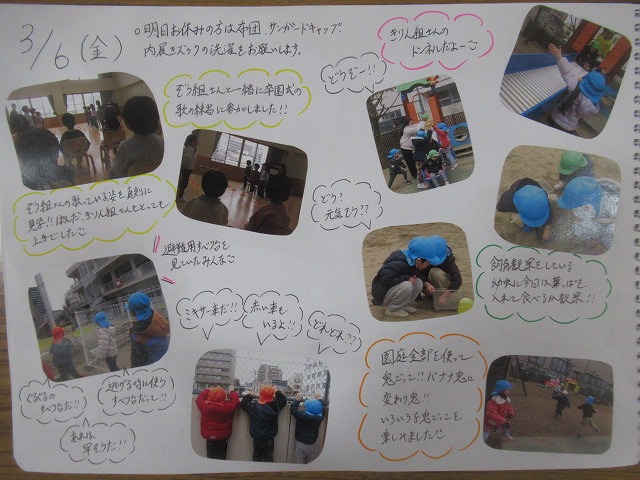 3/6(金)
○明日お休みの方は布団、サンガードキャップ、
内履きズックの洗濯をお願いします。
きりん組さんの
トンネルだよー
どうぞー!!
ぞう組さんと一緒に卒園式の
歌の練習に参加しました!!
ぞう組さんの歌っている姿を真剣に
見学!!ぱんだ、きりん組さんもとっても
上手でした
どう?
元気そう??
避難用すべり台を
見ていたみんな
飼育観察をしている
幼虫に今日は葉っぱを
入れて食べるか観察!!
ミキサー車だ!!
赤い車も
いるよ!!
どれどれ??
園庭全部を使って
鬼ごっこ!!バナナ鬼に
変わり鬼!!
いろいろな鬼ごっこを
楽しみました
ぐるぐるの
すべり台だ!!
逃げる時に使う
すべり台だって!!
あれは
早そうだ!!